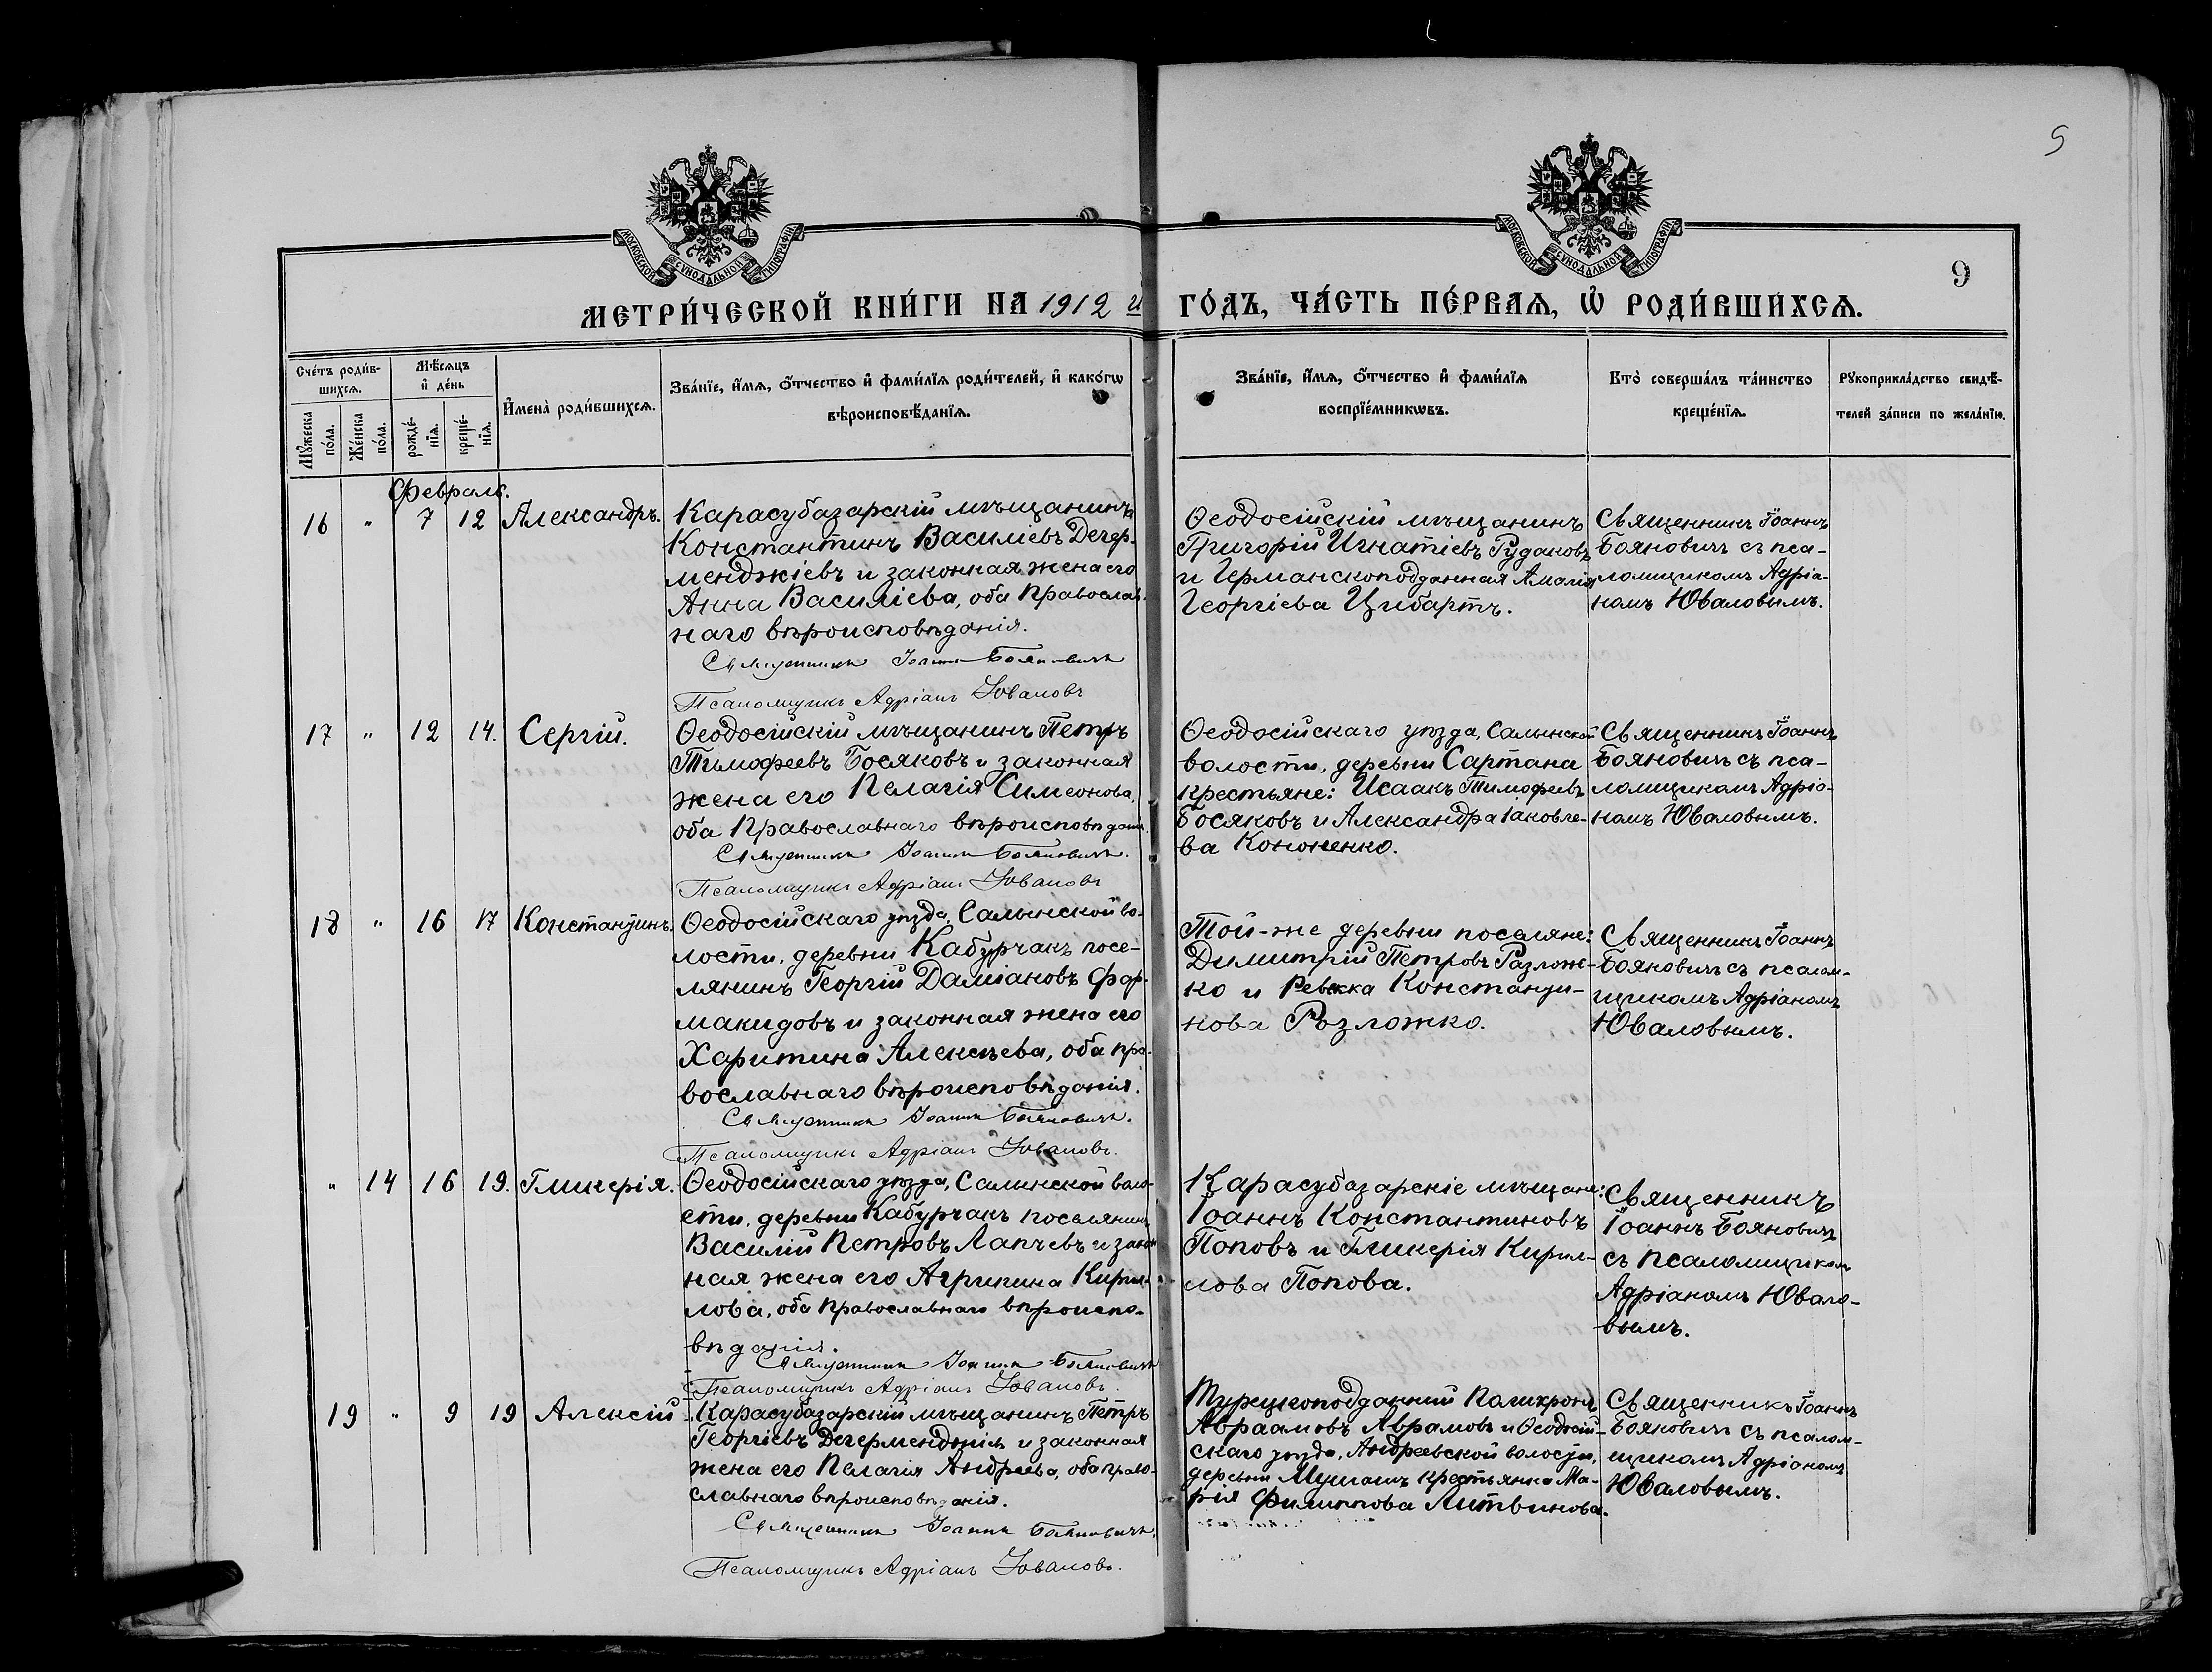 5
9
МОСКОВСКОЙ СѴНОДАЛЬНОЙ ТИПОГРАФІИ
МОСКОВСКОЙ СѴНОДАЛЬНОЙ ТИПОГРАФІИ
МЕТРИ́ЧЕСКОЙ КНИ́ГИ НА 1912 й ГО́ДЪ, ЧА́СТЬ ПЕ́РВАѦ, Ѡ҆ РОДИ́ВШИХСѦ.
Сче́тъ роди́в-
шихсѧ.
Мѣ́сѧцъ
и҆ де́нь
Мꙋ́жеска
по́ла.
Же́нска
по́ла.
рожде́-
нїѧ.
креще́-
нїѧ.
И҆мена̀ роди́вшихсѧ.
Зва́нїе, и҆́мѧ, ѻ҆́тчество и҆ фами́лїѧ роди́телей, и҆ како́гѡ
вѣроисповѣ́данїѧ.
Зва́нїе, и҆́мѧ, ѻ҆́тчество и҆ фами́лїѧ
воспрїе́мникѡвъ.
Кто̀ соверша́лъ та́инство
креще́нїѧ.
Рꙋкоприкла́дство свидѣ́-
телей за́писи по жела́нїю.
Февраль.
16 " 7 12 Александръ.
Карасубазарскій мѣщанинъ
Константинъ Василіевъ Дегер-
менджіевъ и законная жена его
Анна Василіева, оба Православ-
наго вѣроисповѣданія.
Священникъ Іоаннъ Бояновичъ
Псаломщикъ Адріанъ Юваловъ
Ѳеодосійскій мѣщанинъ
Григорій Игнатіевъ Рудаковъ
и Германскоподданная Амалія
Георгіева Цибартъ.
Священникъ Іоаннъ
Бояновичъ съ пса-
ломщикомъ Адріа-
номъ Юваловымъ.
17 " 12 14. Сергій.
Ѳеодосійскій мѣщанинъ Петръ
Тимофеевъ Босяковъ и законная
жена его Пелагія Симеонова,
оба Православнаго вѣроисповѣданія.
Священникъ Іоаннъ Бояновичъ.
Псаломщикъ Адріанъ Юваловъ
Ѳеодосійскаго уѣзда, Салынской
волости, деревни Сартана
крестьяне: Исаакъ Тимофеевъ
Босяковъ и Александра Іаковле-
ва Кононенко.
Священникъ Іоаннъ
Бояновичъ съ пса-
ломщикомъ Адріа-
номъ Юваловымъ.
18 " 16 17 Константинъ.
Ѳеодосійскаго уѣзда, Салынской во-
лости, деревни Кабурчакъ посе-
лянинъ Георгій Даміановъ Фар-
макидовъ и законная жена его
Харитина Алексѣева, оба пра-
вославнаго вѣроисповѣданія.
Священникъ Іоаннъ Бояновичъ.
Псаломщикъ Адріанъ Юваловъ.
Той-же деревни поселяне:
Димитрій Петровъ Разлож-
ко и Ревекка Константи-
нова Розложко.
Священникъ Іоаннъ
Бояновичъ съ псалом-
щикомъ Адріаномъ
Юваловымъ.
" 14 16 19. Гликерія.
Ѳеодосійскаго уѣзда, Салынской воло-
сти, деревни Кабурчакъ поселянинъ
Василій Петровъ Лапчевъ и закон
ная жена его Агрипина Кирил-
лова, оба православнаго вѣроиспо-
вѣданія.
Священникъ Іоаннъ Бояновичъ
Псаломщикъ Адріанъ Юваловъ.
Карасубазарскіе мѣщане:
Іоаннъ Константиновъ
Поповъ и Гликерія Кирил-
лова Попова.
Священникъ
Іоаннъ Бояновичъ
съ псаломщикомъ
Адріаномъ Ювало-
вымъ.
19 " 9 19 Алексій
Карасубазарскій мѣщанинъ Петръ
Георгіевъ Дегерменджіевъ и законная
жена его Пелагія Андреева, оба право-
славнаго вѣроисповѣданія.
Священникъ Іоаннъ Бояновичъ.
Псаломщикъ Адріанъ Юваловъ.
Турецкоподданный Полихронъ
Авраамовъ Аврамовъ и Ѳеодосій-
скаго уѣзда, Андреевской волости,
деревни Мушашъ крестьянка Ма-
рія Филиппова Литвинова.
Священникъ Іоаннъ
Бояновичъ съ псалом-
щикомъ Адріаномъ
Юваловымъ.